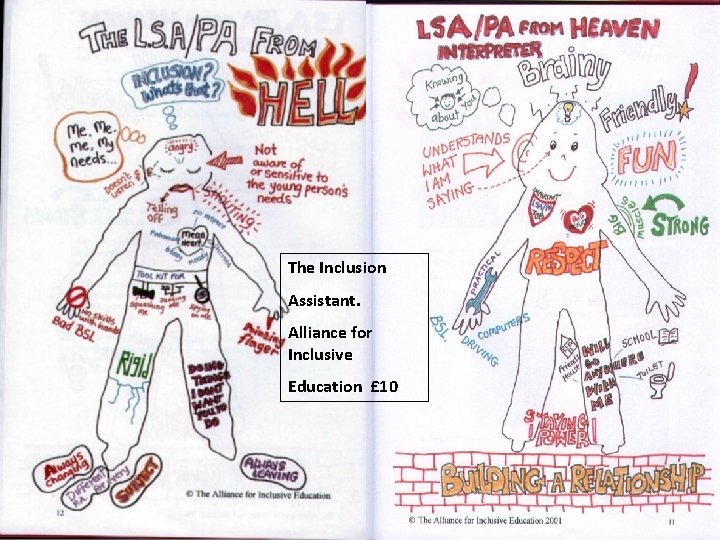 THE L.S.A/PA FROM
HELL
INCLUSION?
What's that?
Me, Me,
me, My
needs...
angry
Not
aware of
or sensitive to
the young person's
needs
Doesn't
listen
SHOUTING
Telling
off
no respect
Mean
Heart
bossy
moody
TOOL KIT FOR
squashing
me
Judging
me
Spying
on me
No skills
with hands
Bad BSL
Pointing
finger
Rigid
DOING
THINGS
I DON'T
WANT
YOU TO
DO
Always
changing
Different
P.A. for every
SUBJECT
ALWAYS
LEAVING
© The Alliance for Inclusive Education
12
The Inclusion
Assistant.
Alliance for
Inclusive
Education £10
LSA/PA FROM HEAVEN
INTERPRETER
Knowing
about you
Brainy
Friendly!
UNDERSTANDS
WHAT
I AM
SAYING
FUN
BIG
muscles
STRONG
RESPECT
PRACTICAL
BSL
COMPUTERS
DRIVING
Friends
House
WILL
GO
ANYWHERE
WITH
ME
SCHOOL
TOILET
STAYING
POWER!
BUILDING A RELATIONSHIP
© The Alliance for Inclusive Education 2001
11